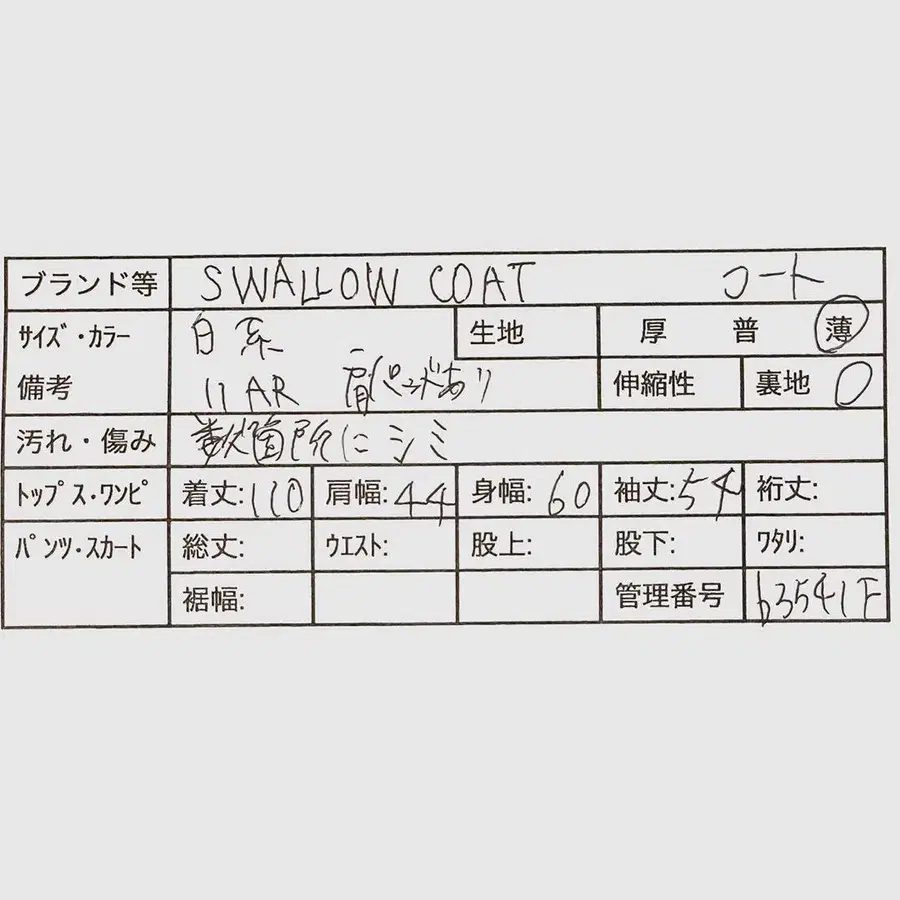 ブランド等 SWALLOW COAT コート
サイズ・カラー 白系 生地 厚 普 薄
備考 11AR 肩パッドあり 伸縮性 裏地 ○
汚れ・傷み 数箇所にシミ
トップス・ワンピ 着丈:110 肩幅:44 身幅:60 袖丈:54 裄丈:
パンツ・スカート 総丈: ウエスト: 股上: 股下: ワタリ:
裾幅: 管理番号 b3541F